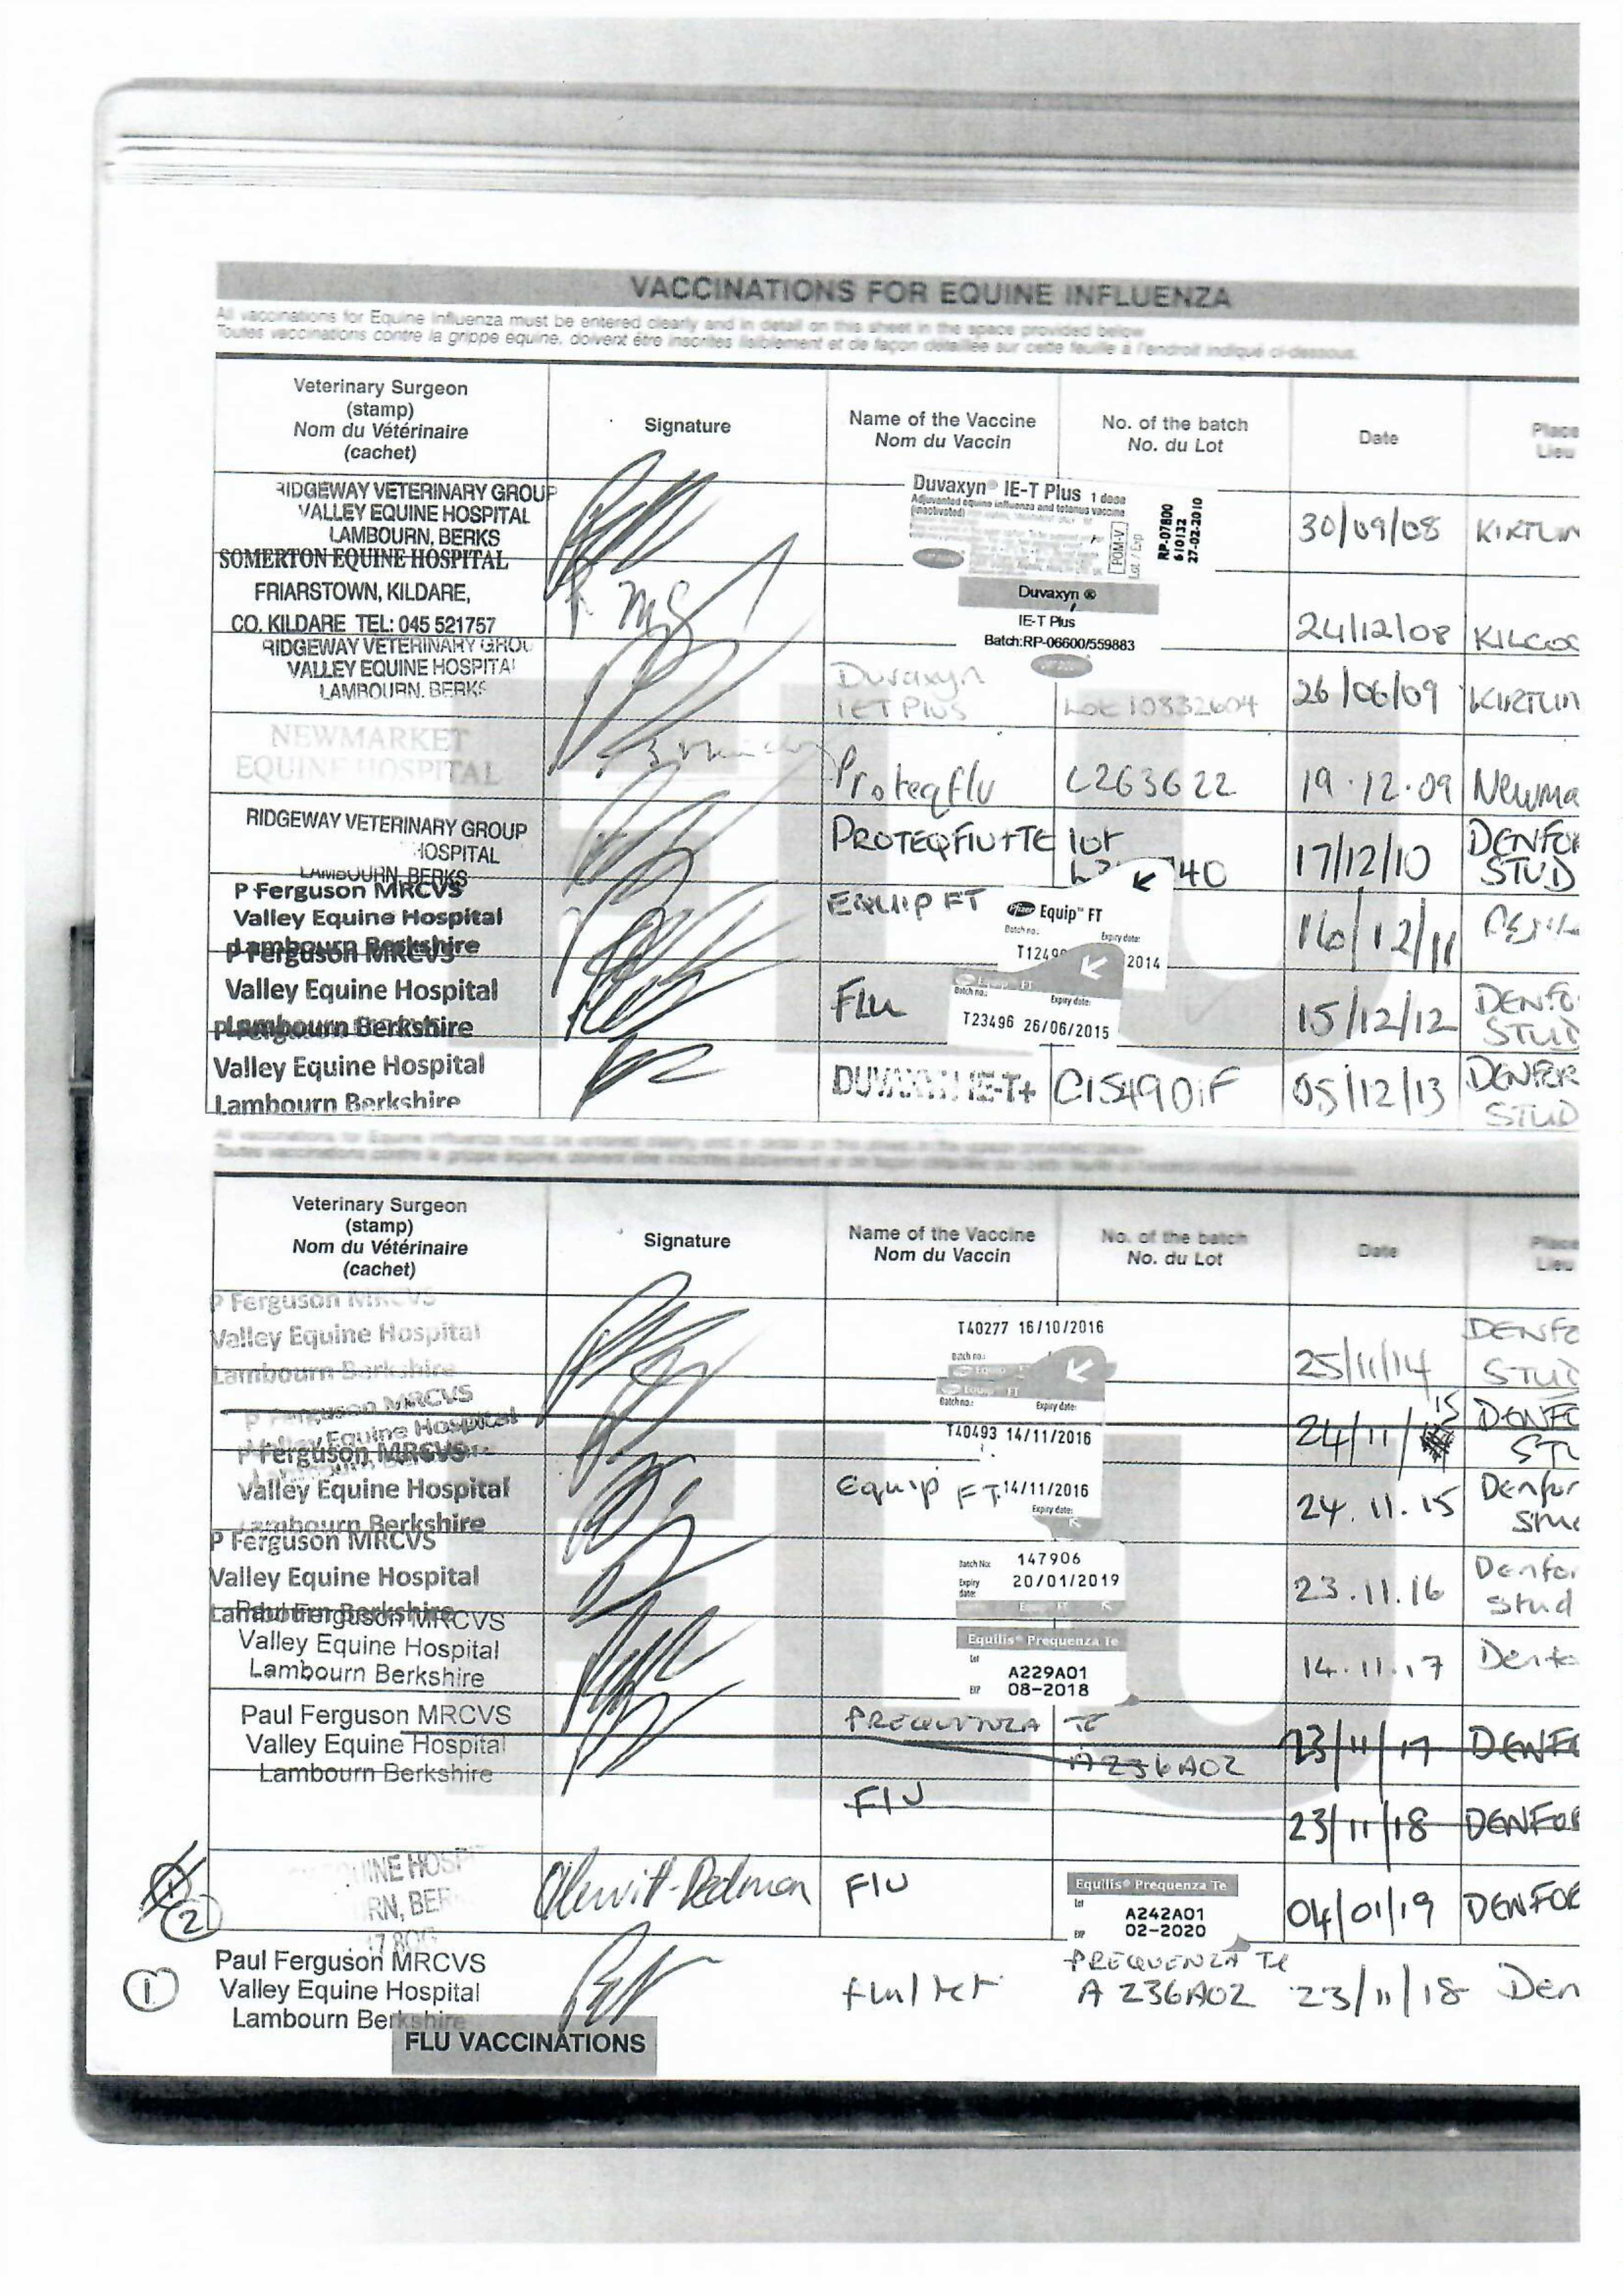 VACCINATIONS FOR EQUINE INFLUENZA
All vaccinations for Equine Influenza must be entered clearly and in detail on this sheet in the space provided below
Toutes vaccinations contre la grippe equine, doivent être inscrites lisiblement et de façon détaillée sur cette feuille à l'endroit indiqué ci-dessous.
Veterinary Surgeon (stamp) Nom du Vétérinaire (cachet)
Signature
Name of the Vaccine Nom du Vaccin
No. of the batch No. du Lot
Date
Place Lieu
RIDGEWAY VETERINARY GROUP
VALLEY EQUINE HOSPITAL
LAMBOURN, BERKS
Duvaxyn® IE-T Plus 1 dose
Adjuvanted equine influenza and tetanus vaccine
(inactivated)
POM-V
Lot / Exp
RP-07800
610132
27-02-2010
30/09/08
KIRTLIN
SOMERTON EQUINE HOSPITAL
FRIARSTOWN, KILDARE,
CO. KILDARE TEL: 045 521757
Duvaxyn ®
IE-T Plus
Batch:RP-06600/559883
24/12/08
KILCOO
RIDGEWAY VETERINARY GROU
VALLEY EQUINE HOSPITAL
LAMBOURN. BERKS
Duvaxyn
IET Plus
Lot 10832604
26/06/09
KIRTLIN
NEWMARKET
EQUINE HOSPITAL
Proteqflu
L263622
19.12.09
Newma
RIDGEWAY VETERINARY GROUP
HOSPITAL
LAMBOURN, BERKS
PROTEQFLU+TE
lot
40
17/12/10
DENFOR
STUD
P Ferguson MRCVS
Valley Equine Hospital
Lambourn Berkshire
EQUIP FT
Pfizer Equip™ FT
Batch no.: Expiry date:
T1249
2014
16/12/11
P Ferguson MRCVS
Valley Equine Hospital
Lambourn Berkshire
FLU
Equip FT
Batch no.: Expiry date:
T23496 26/06/2015
15/12/12
DENFO
STUD
Valley Equine Hospital
Lambourn Berkshire
DUVAXYN IE-T+
C15490iF
05/12/13
DENFOR
STUD
All vaccinations for Equine Influenza must be entered clearly and in detail on this sheet in the space provided below
Toutes vaccinations contre la grippe equine, doivent être inscrites lisiblement et de façon détaillée sur cette feuille à l'endroit indiqué ci-dessous.
Veterinary Surgeon (stamp) Nom du Vétérinaire (cachet)
Signature
Name of the Vaccine Nom du Vaccin
No. of the batch No. du Lot
Date
Place Lieu
P Ferguson MRCVS
Valley Equine Hospital
Lambourn Berkshire
T40277 16/10/2016
Batch no.:
Equip FT
25/11/14
DENFO
STUD
P Ferguson MRCVS
Valley Equine Hospital
Equip FT
Batch no.: Expiry date:
T40493 14/11/2016
24/11/15
DENFO
STU
P Ferguson MRCVS
Valley Equine Hospital
Lambourn Berkshire
Equip FT
14/11/2016
Expiry date:
24.11.15
Denfor
Stu
P Ferguson MRCVS
Valley Equine Hospital
Lambourn Berkshire
Batch No: 147906
Expiry date: 20/01/2019
Equip FT
23.11.16
Denfor
Stud
Paul Ferguson MRCVS
Valley Equine Hospital
Lambourn Berkshire
Equilis® Prequenza Te
Lot A229A01
EXP 08-2018
14.11.17
Denfo
Paul Ferguson MRCVS
Valley Equine Hospital
Lambourn Berkshire
PREQUENZA TE
A236A02
23/11/17
DENFO
FLU
23/11/18
DENFOR
2
EQUINE HOSPI
RN, BER
Olewitt-Dedman
FLU
Equilis® Prequenza Te
Lot A242A01
EXP 02-2020
04/01/19
DENFOR
1
Paul Ferguson MRCVS
Valley Equine Hospital
Lambourn Berkshire
flu/tet
PREQUENZA Te
A 236A02
23/11/18
Den
FLU VACCINATIONS
FLU
FLU